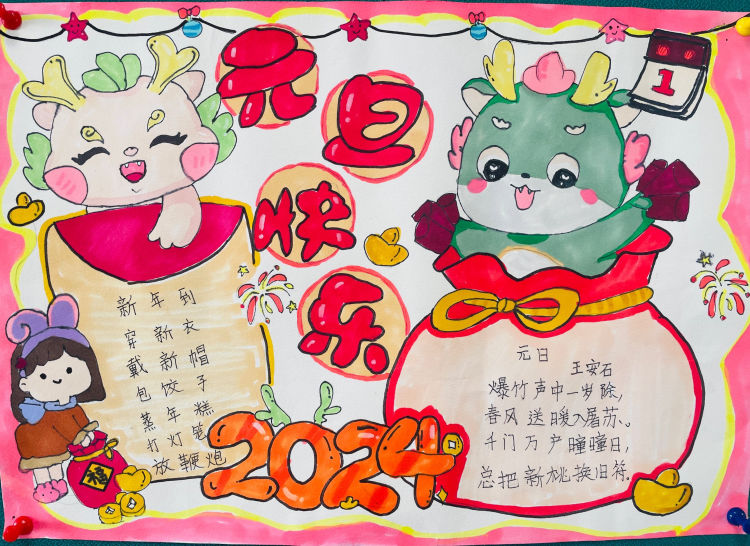 元旦快乐
1
新年到
穿新衣
戴新帽
包饺子
蒸年糕
打灯笼
放鞭炮
福
2024
元日
王安石
爆竹声中一岁除,
春风送暖入屠苏、。
千门万户曈曈日,
总把新桃换旧符。